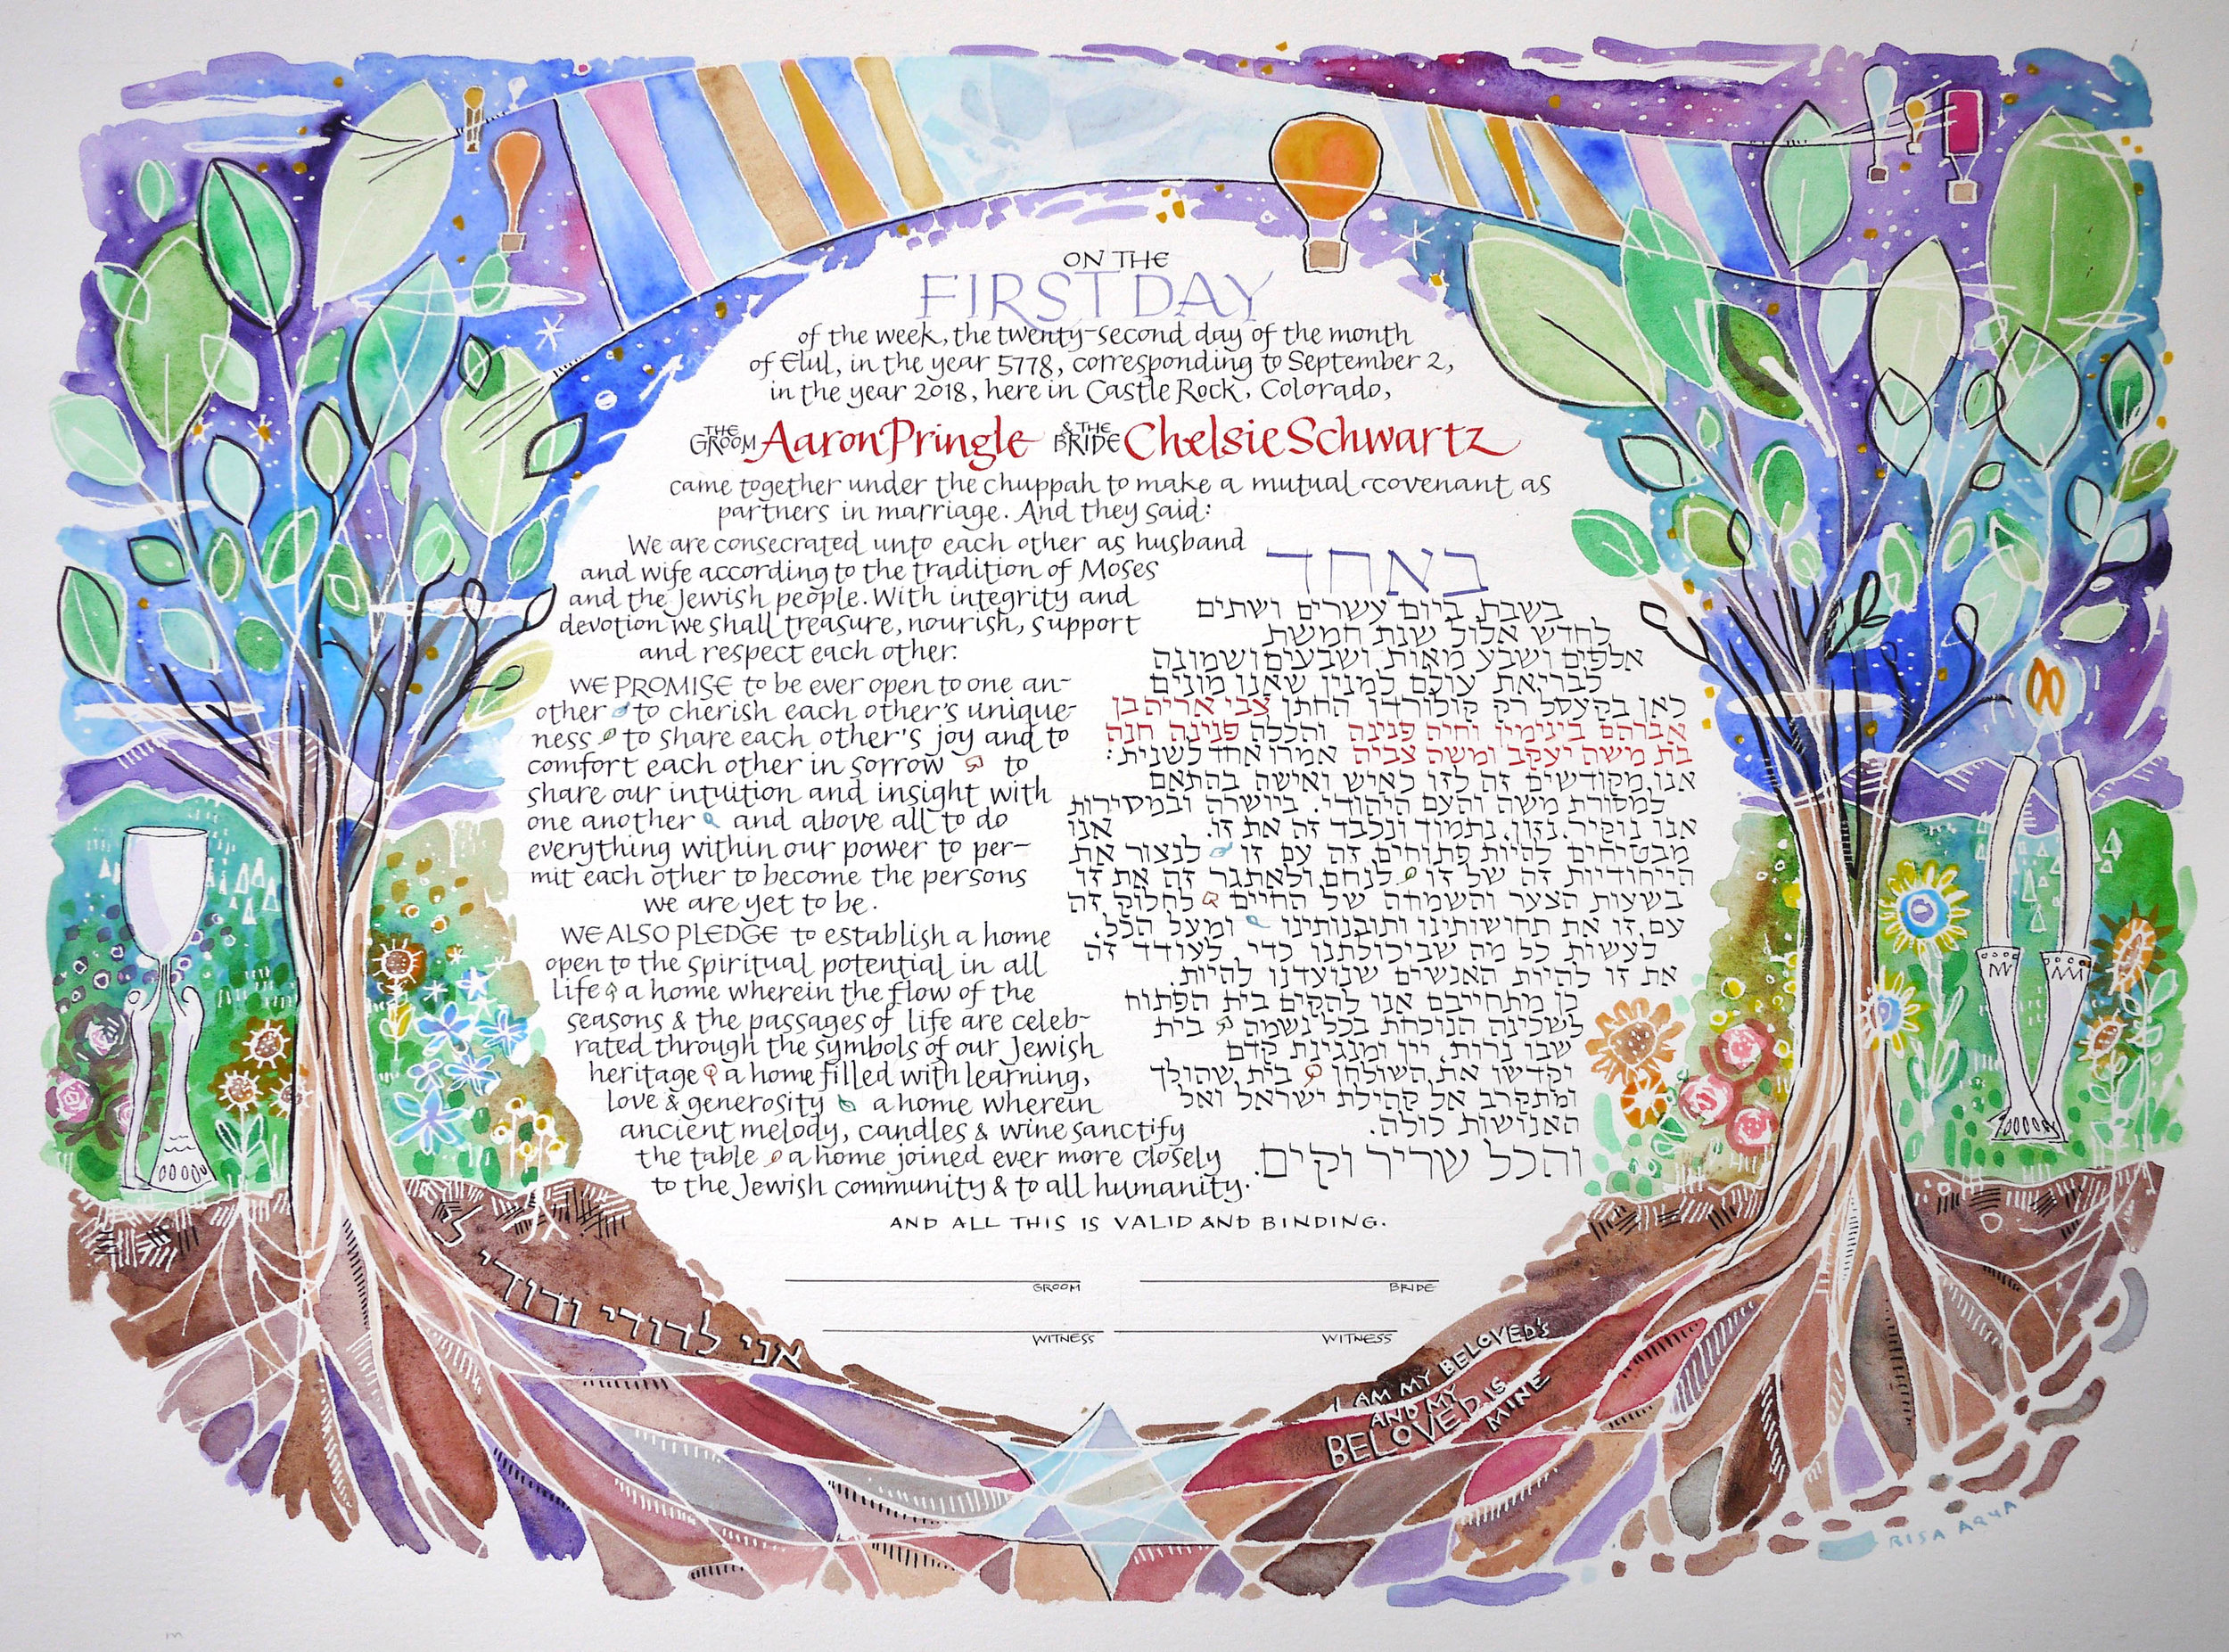 ON THE
FIRST DAY
of the week, the twenty-second day of the month
of Elul, in the year 5778, corresponding to September 2,
in the year 2018, here in Castle Rock, Colorado,
THE GROOM Aaron Pringle & THE BRIDE Chelsie Schwartz
came together under the chuppah to make a mutual covenant as
partners in marriage. And they said:
We are consecrated unto each other as husband
and wife according to the tradition of Moses
and the Jewish people. With integrity and
devotion we shall treasure, nourish, support
and respect each other.
WE PROMISE to be ever open to one an-
other to cherish each other's unique-
ness to share each other's joy and to
comfort each other in sorrow to
share our intuition and insight with
one another and above all to do
everything within our power to per-
mit each other to become the persons
we are yet to be.
WE ALSO PLEDGE to establish a home
open to the spiritual potential in all
life a home wherein the flow of the
seasons & the passages of life are celeb-
rated through the symbols of our Jewish
heritage a home filled with learning,
love & generosity a home wherein
ancient melody, candles & wine sanctify
the table a home joined ever more closely
to the Jewish community & to all humanity.
באחד
בשבת, ביום עשרים ושתים
לחדש אלול שנת חמשת
אלפים ושבע מאות ושבעים ושמונה
לבריאת עולם למנין שאנו מונים
כאן בקעסל רק קולורדו החתן צבי אריה בן
אברהם בינימין וחיה פנינה והכלה פנינה חנה
בת משה יעקב ומשה צביה אמרו אחד לשנית:
אנו מקודשים זה לזו כאיש ואישה בהתאם
למסורת משה והעם היהודי. ביושרה ובמסירות
אנו נוקיר, נזון, נתמוך ונכבד זה את זו. אנו
מבטיחים להיות פתוחים זה עם זו לנצור את
הייחודיות זה של זו לנחם ולאתגר זה את זו
בשעות הצער והשמחה של החיים לחלוק זה
עם זו את תחושותינו ותובנותינו ומעל הכל,
לעשות כל מה שביכולתנו כדי לעודד זה
את זו להיות האנשים שנועדנו להיות.
כן מתחייבם אנו להקים בית הפתוח
לשכינה הנוכחת בכל נשמה בית
שבו נרות, יין ומנגינת קדם
יקדשו את השולחן בית שהולך
ומתקרב אל קהילת ישראל ואל
האנושות כולה.
והכל שריר וקים.
AND ALL THIS IS VALID AND BINDING.
GROOM
BRIDE
WITNESS
WITNESS
אני לדודי ודודי לי
I AM MY BELOVED'S
AND MY
BELOVED IS
MINE
RISA AQUA